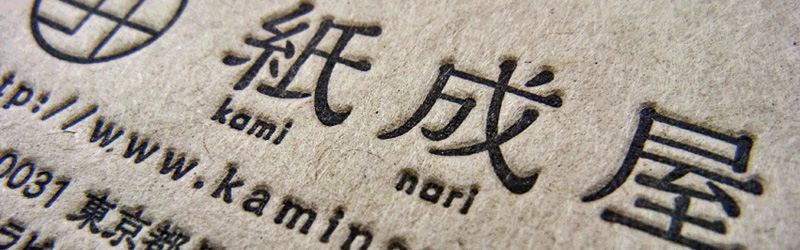 紙成屋
kami nari
tp://www.kamina
0031 東京都
ラビ